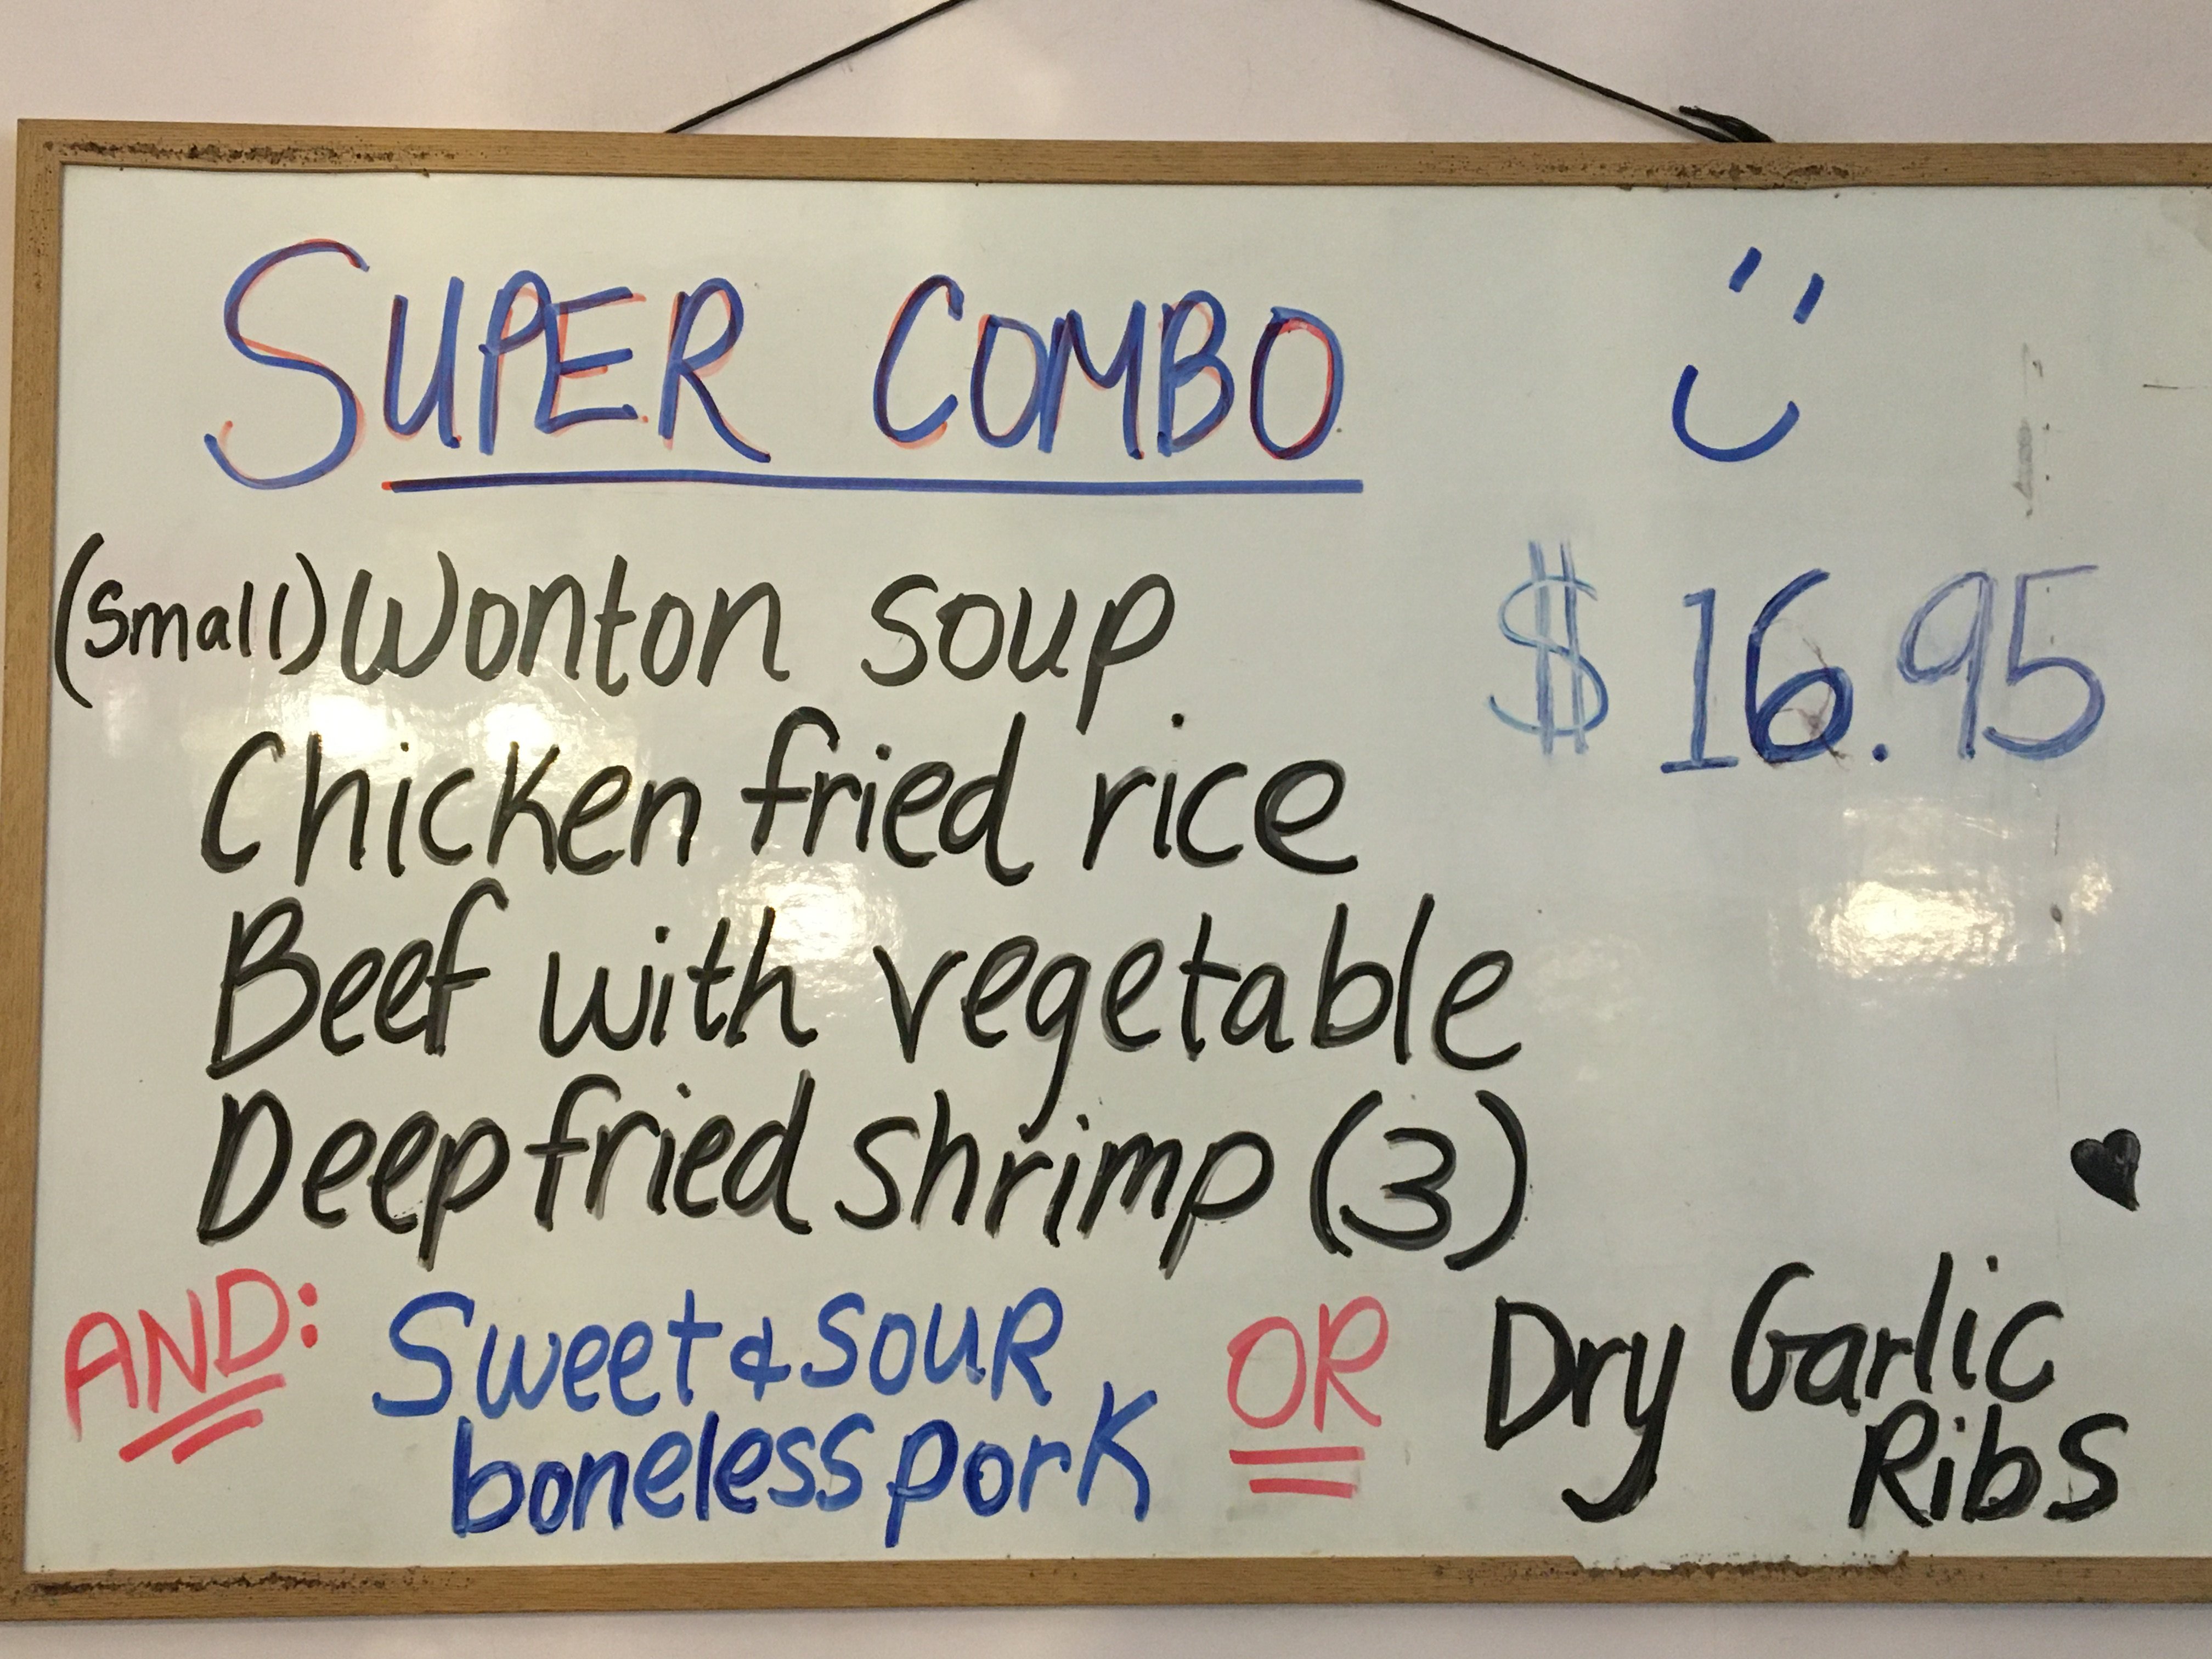 SUPER COMBO
(Small) Wonton soup $16.95
Chicken fried rice
Beef with vegetable
Deep fried shrimp (3)
AND: Sweet & SOUR OR Dry Garlic
boneless pork Ribs